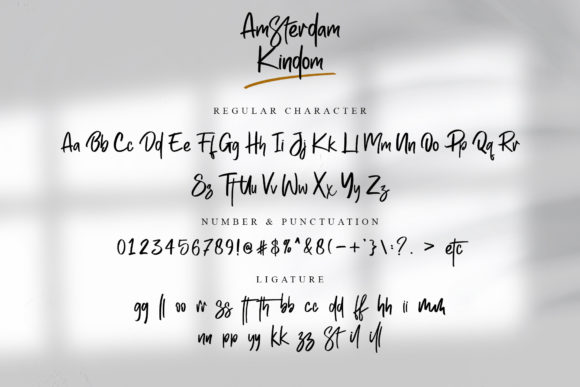 Amsterdam
Kindom
REGULAR CHARACTER
Aa Bb Cc Dd Ee Ff Gg Hh Ii Jj Kk Ll Mm Nn Oo Pp Qq Rr
Ss Tt Uu Vv Ww Xx Yy Zz
NUMBER & PUNCTUATION
0123456789!@#$%^&8(-+'}\:?. > etc
LIGATURE
gg ll oo rr ss tt th bb cc dd ff hh ii mm
nn pp yy kk zz St il ill